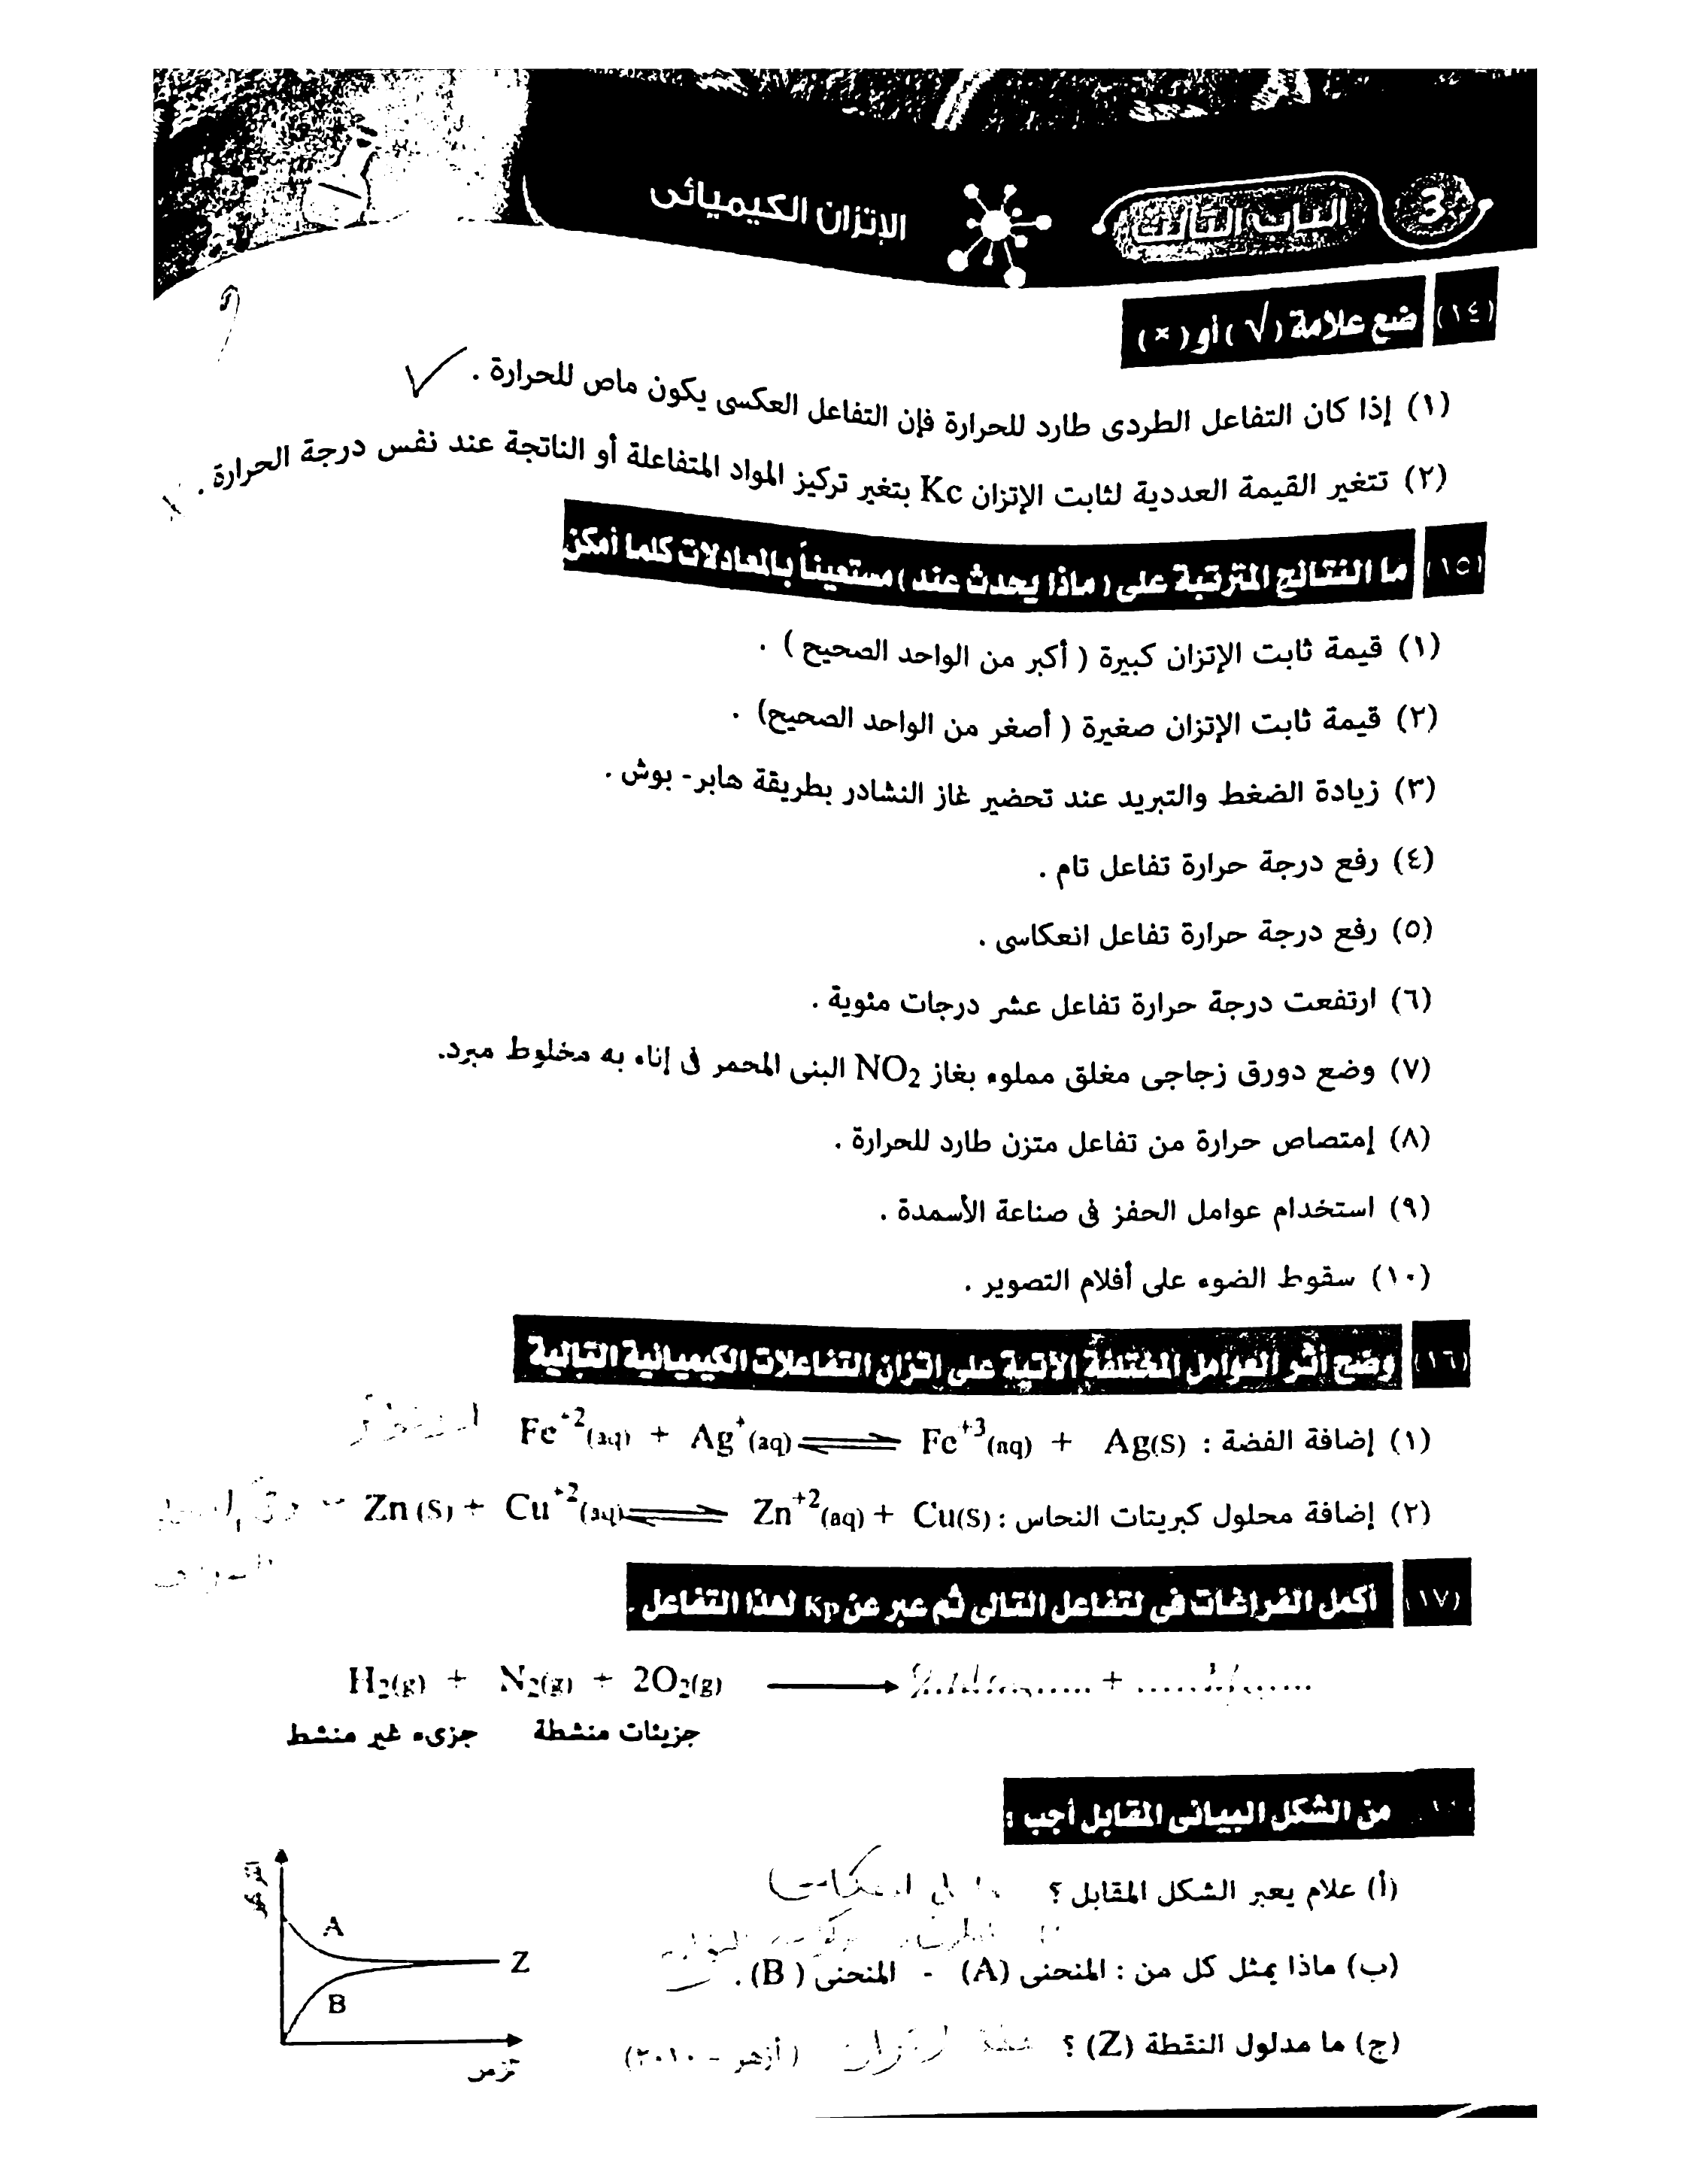 3 الباب الثالث الإتزان الكيميائى
(١٤) ضع علامة (√) أو (×)
(١) إذا كان التفاعل الطردى طارد للحرارة فإن التفاعل العكسى يكون ماص للحرارة . ✓
(٢) تتغير القيمة العددية لثابت الإتزان Kc بتغير تركيز المواد المتفاعلة أو الناتجة عند نفس درجة الحرارة .
(١٥) ما النتائج المترتبة على ( ماذا يحدث عند ) مستعيناً بالمعادلات كلما أمكن
(١) قيمة ثابت الإتزان كبيرة ( أكبر من الواحد الصحيح ) .
(٢) قيمة ثابت الإتزان صغيرة ( أصغر من الواحد الصحيح) .
(٣) زيادة الضغط والتبريد عند تحضير غاز النشادر بطريقة هابر- بوش .
(٤) رفع درجة حرارة تفاعل تام .
(٥) رفع درجة حرارة تفاعل انعكاسى .
(٦) ارتفعت درجة حرارة تفاعل عشر درجات مئوية .
(٧) وضع دورق زجاجى مغلق مملوء بغاز NO2 البنى المحمر فى إناء به مخلوط مبرد.
(٨) إمتصاص حرارة من تفاعل متزن طارد للحرارة .
(٩) استخدام عوامل الحفز فى صناعة الأسمدة .
(١٠) سقوط الضوء على أفلام التصوير .
(١٦) وضح أثر العوامل المختلفة الآتية على اتزان التفاعلات الكيميائية التالية
(١) إضافة الفضة : Fe+2(aq) + Ag+(aq) ⇌ Fe+3(aq) + Ag(S)
(٢) إضافة محلول كبريتات النحاس : Zn (S) + Cu+2(aq) ⇌ Zn+2(aq) + Cu(S)
(١٧) أكمل الفراغات فى لتفاعل التالى ثم عبر عن Kp لهذا التفاعل .
H2(g) + N2(g) + 2O2(g) ⟶ ........... + ...........
جزيئات منشطة جزىء غير منشط
من الشكل البيانى المقابل أجب :
(أ) علام يعبر الشكل المقابل ؟
(ب) ماذا يمثل كل من : المنحنى (A) - المنحنى (B) .
(ج) ما مدلول النقطة (Z) ؟ ( أزهر - ٢٠١٠)
A
B
Z